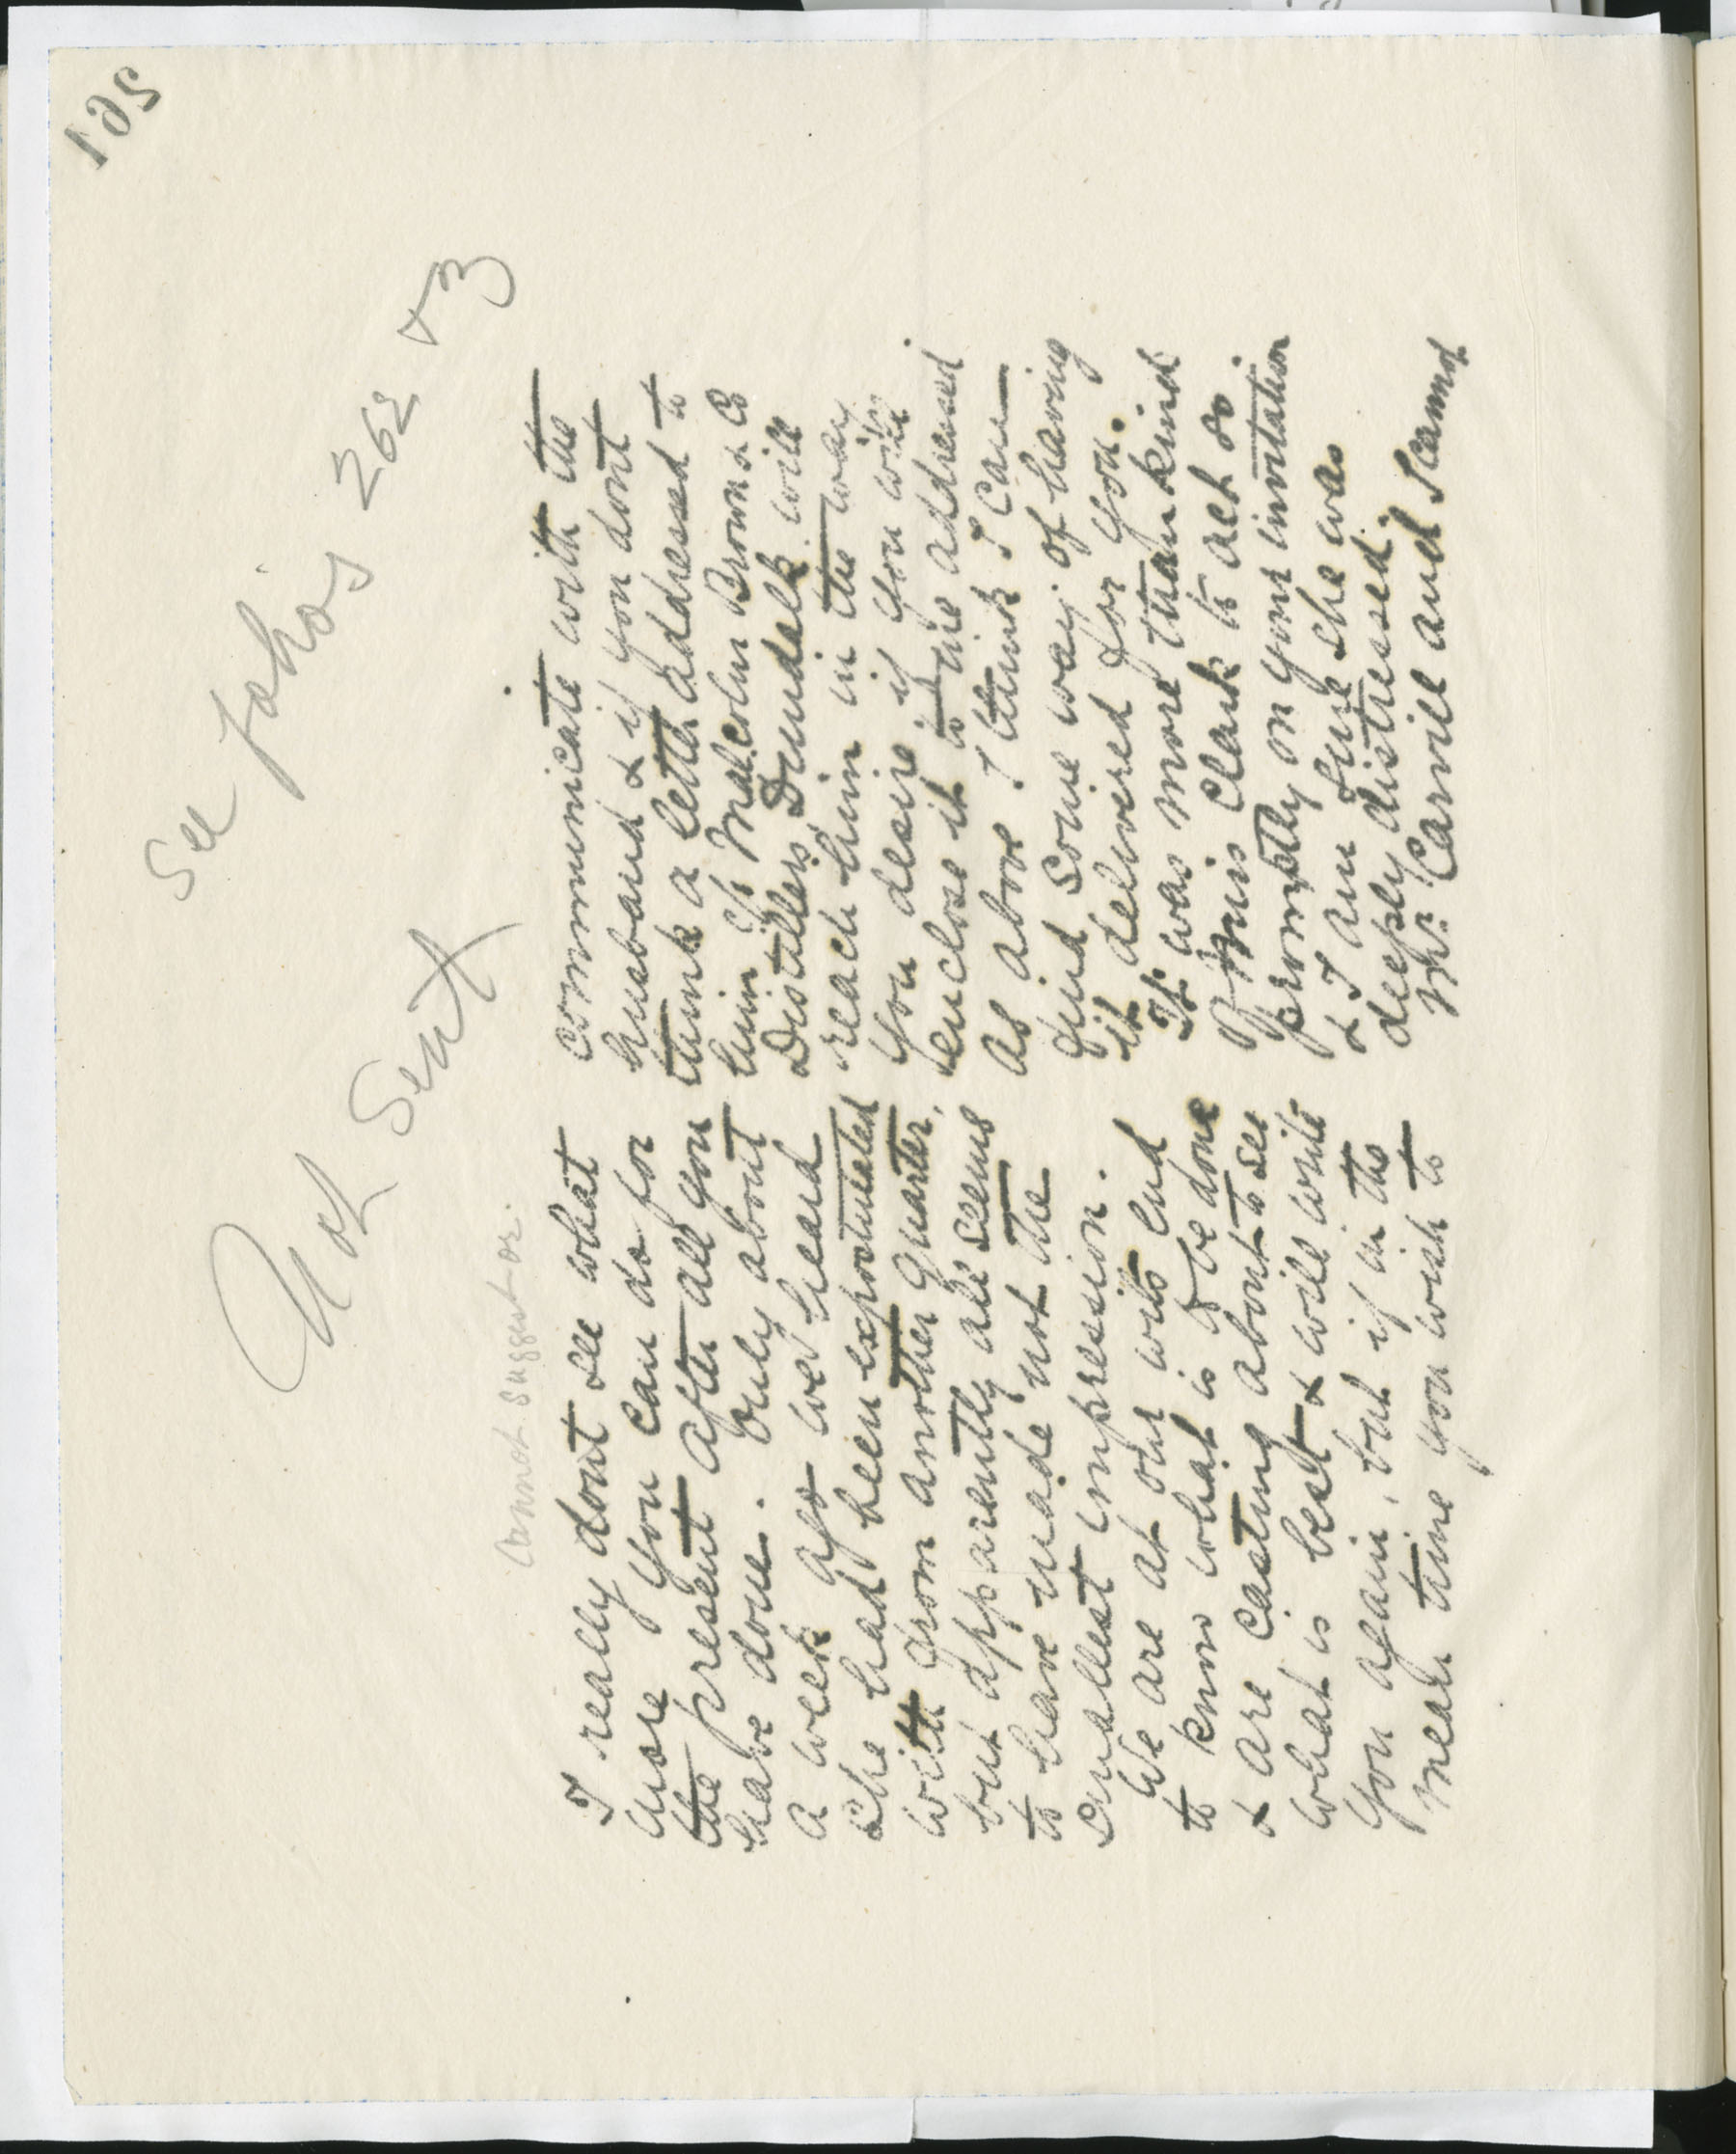 195
See Folios 262 & 3
Not Sent
cannot suggest or
I really dont see what
more you can do for
the present after all you
have done. Only about
a week ago we heard
she had been expostulated
with from another quarter,
but apparently all seems
to have made not the
smallest impression.
We are at our wits end
to know what is to be done
& are casting about to see
what is best & will write
you again, but if in the
mean time you wish to
communicate with the
husband & if you dont
think a letter addressed to
him c/o Malcolm Brown & Co
Distillers, Dundalk will
reach him in the way
you desire if you will
enclose it to me addressed
as above I think I can
find some way of having
it delivered for you.
It was more than kind
of Miss Clark to act so
promptly on your invitation
& I am sure she was
deeply distressed.
Mrs. Carvill and I cannot